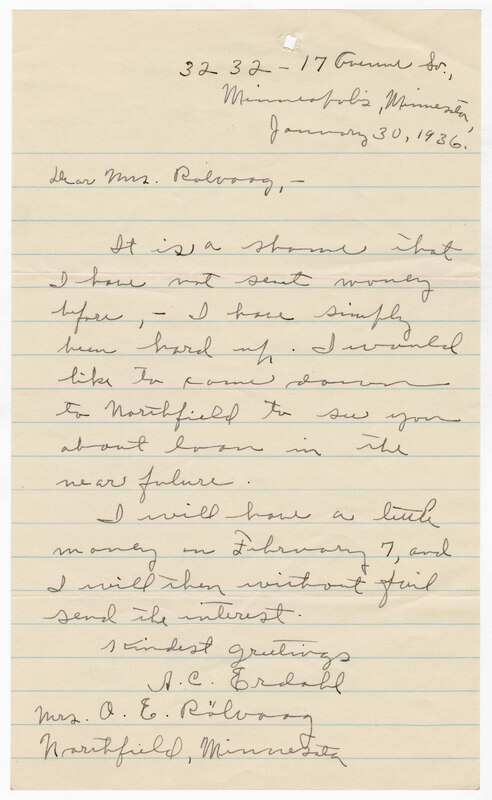 3232 - 17 Avenue So.,
Minneapolis, Minnesota,
January 30, 1936.
Dear Mrs. Rölvaag, -
It is a shame that
I have not sent money
before, - I have simply
been hard up. I would
like to come down
to Northfield to see you
about loan in the
near future.
I will have a little
money on February 7, and
I will then without fail
send the interest.
Kindest greetings
A. C. Erdahl
Mrs. O. E. Rölvaag
Northfield, Minnesota